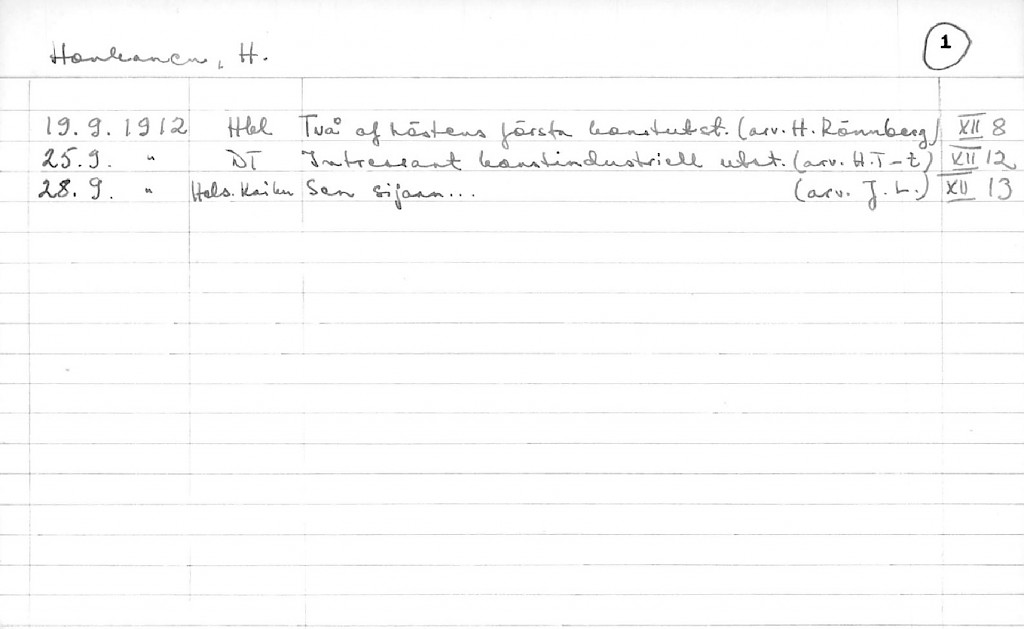 Honkanen, H.
1
19.9.1912 Hbl Två af höstens första konstutst. (arv. H. Rönnberg) XII 8
25.9. " DT Intressant konstindustriell utst. (arv. H.T-t) XII 12
28.9. " Hels. Kaiku Sen sijaan... (arv. J. L.) XII 13